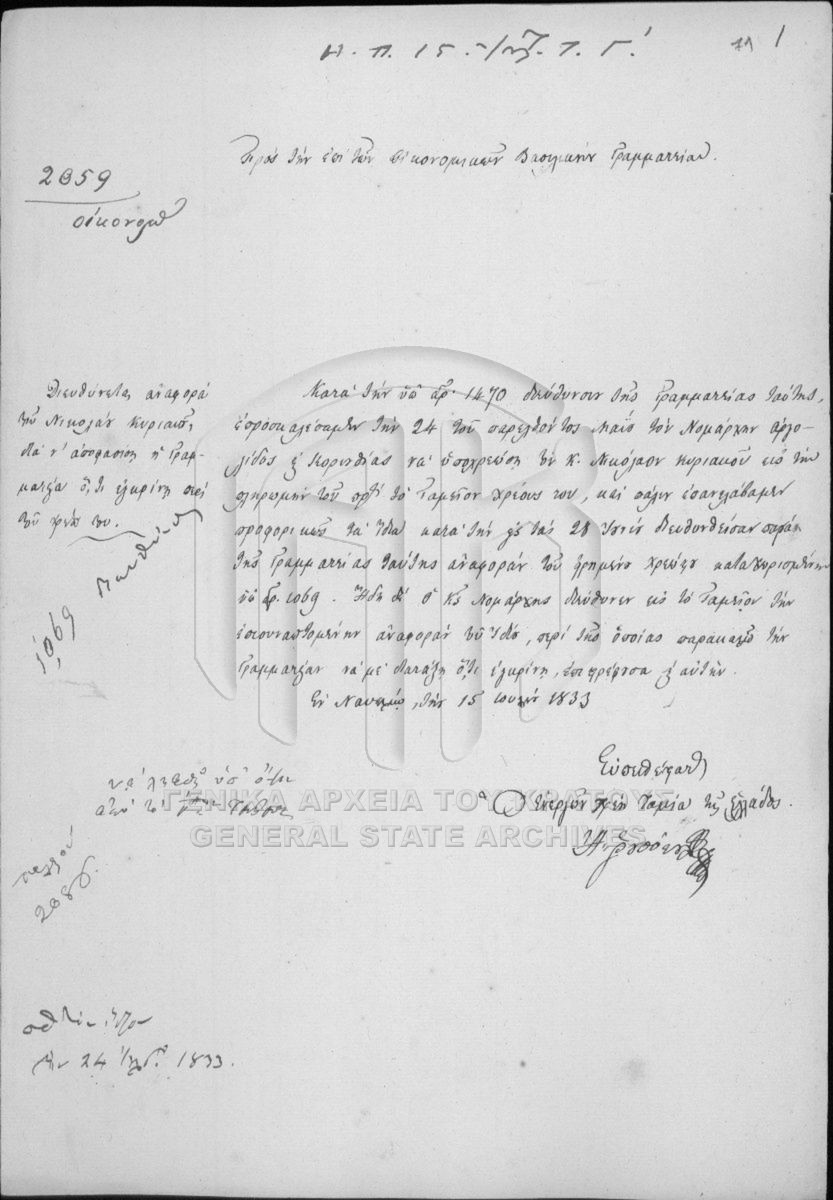 Η. Π. 15. Τ. Γ.
11 1
Πρὸς τὴν ἐπὶ τῶν Οἰκονομικῶν Βασιλικὴν Γραμματείαν.
2059
Διευθύνεται ἀναφορὰ
τοῦ Νικολάου Κυριακοῦ,
διὰ ν' ἀποφασίσῃ ἡ Γραμ-
ματεία ὅ,τι ἐγκρίνῃ περὶ
τοῦ χρέους του.
Κατὰ τὴν ὑπ' ἀρ. 1470 διεύθυνσιν τῆς Γραμματείας ταύτης,
ἐπροσκαλέσαμεν τὴν 24 τοῦ παρελθόντος Μαΐου τὸν Νομάρχην Ἀργο-
λίδος καὶ Κορινθίας νὰ ὑποχρεώσῃ τὸν Κ. Νικόλαον Κυριακοῦ εἰς τὴν
πληρωμὴν τοῦ πρὸς τὸ Ταμεῖον χρέους του, καὶ πάλιν ἐπανελάβαμεν
προφορικῶς τὰ ἴδια κατὰ τὴν εἰς τὰς 28 διευθυνθεῖσαν παρὰ
τῆς Γραμματείας ταύτης ἀναφορὰν τοῦ εἰρημένου χρεώστου καταχωρισμένην
ὑπ' ἀρ. 1069. Ἤδη δὲ ὁ Κς Νομάρχης διεύθυνεν εἰς τὸ Ταμεῖον τὴν
ἐπισυναπτομένην ἀναφορὰν τοῦ ἰδίου, περὶ τῆς ὁποίας παρακαλῶ τὴν
Γραμματείαν νὰ μὲ διατάξῃ ὅ,τι ἐγκρίνῃ, ἐπιστρέφουσα καὶ αὐτήν.
Ἐν Ναυπλίῳ, τὴν 15 Ἰουλίου 1833
1069
νὰ ληφθῇ ὑπ' ὄψιν
ἀπὸ τὸ
Εὐπειθέστατος
Ὁ ἐνεργῶν χρέη Ταμία τῆς Ἑλλάδος.
208
τὴν 24 1833.
ΓΕΝΙΚΑ ΑΡΧΕΙΑ ΤΟΥ ΚΡΑΤΟΥΣ
GENERAL STATE ARCHIVES